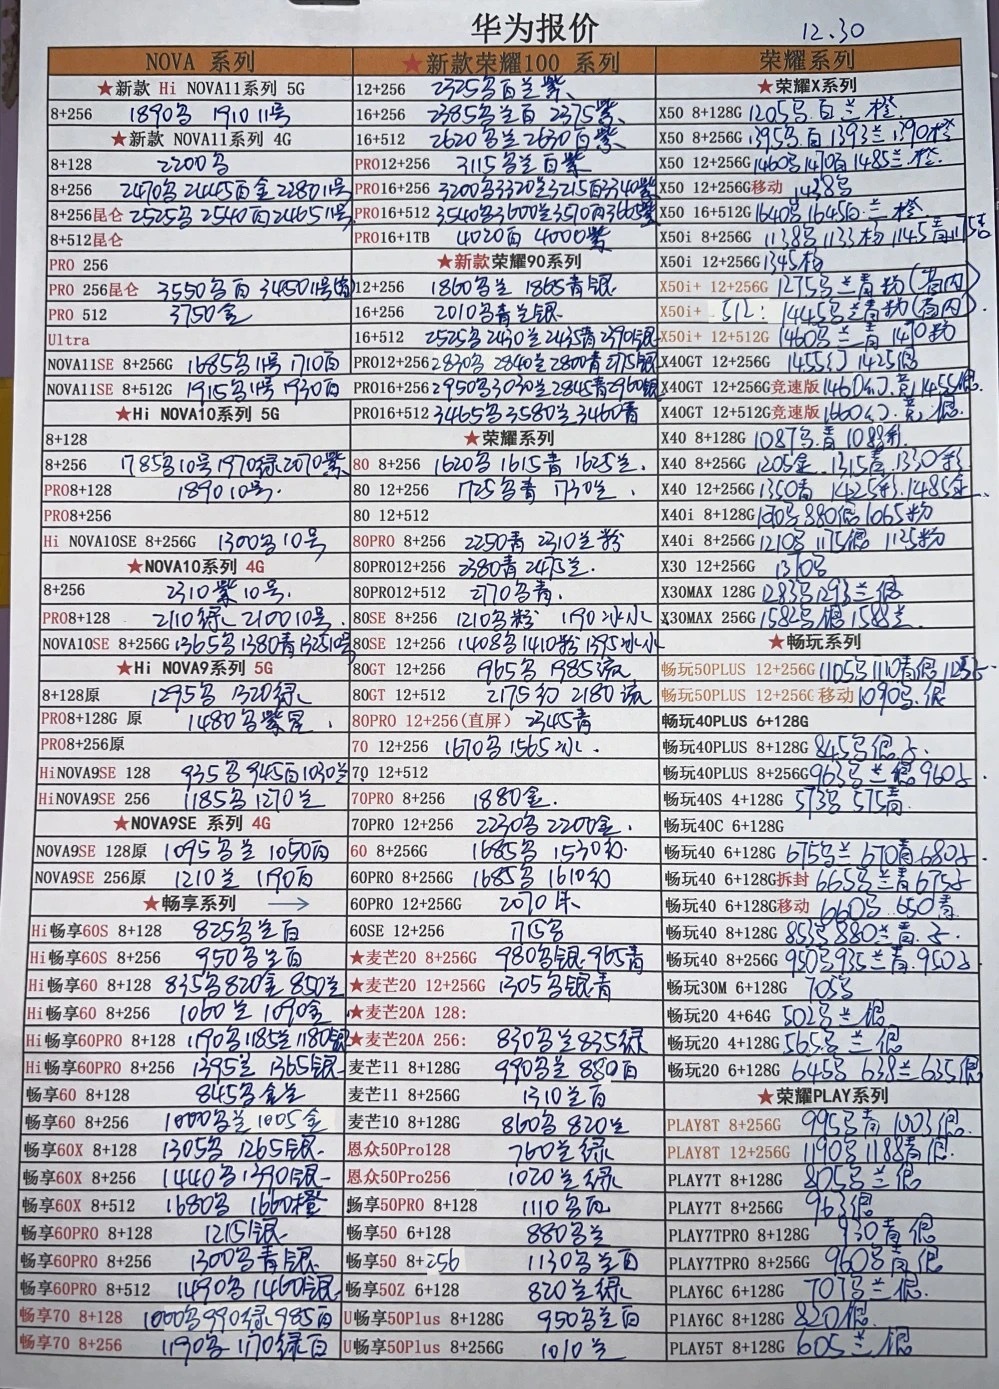 华为报价
12.30
NOVA 系列
★新款 Hi NOVA11系列 5G
8+256 1890多 1910 11号
★新款 NOVA11系列 4G
8+128 2200多
8+256 2470多 2445百金 2280 11号
8+256昆仑 2525多 2540百 2465 11号
8+512昆仑
PRO 256
PRO 256昆仑 3550多百 3450 11号
PRO 512 3750金
Ultra
NOVA11SE 8+256G 1685多11号 1710百
NOVA11SE 8+512G 1915多11号 1930百
★Hi NOVA10系列 5G
8+128
8+256 1785多10号 1970绿 2070紫
PRO8+128 1890 10号.
PRO8+256
Hi NOVA10SE 8+256G 1300多10号
★NOVA10系列 4G
8+256 2310紫 10号.
PRO8+128 2110绿 2100 10号.
NOVA10SE 8+256G 1365多 1380青 1325 10号
★Hi NOVA9系列 5G
8+128原 1295多 1320绿
PRO8+128G 原 1480多紫星
PRO8+256原
HiNOVA9SE 128 935多 945百 1030兰
HiNOVA9SE 256 1185多 1270兰
★NOVA9SE 系列 4G
NOVA9SE 128原 1095多兰 1050百
NOVA9SE 256原 1210兰 1190百
★畅享系列 →
Hi畅享60S 8+128 825多兰百
Hi畅享60S 8+256 950多兰百
Hi畅享60 8+128 835多 820金 850兰
Hi畅享60 8+256 1060兰 1090金
Hi畅享60PRO 8+128 1190多 1185兰 1180银
Hi畅享60PRO 8+256 1395兰 1365银
畅享60 8+128 845多金兰
畅享60 8+256 1000多兰 1005金
畅享60X 8+128 1305多 1265银.
畅享60X 8+256 1440多 1390银.
畅享60X 8+512 1680多 1660橙
畅享60PRO 8+128 1215银
畅享60PRO 8+256 1300多青银
畅享60PRO 8+512 1490多 1460银
畅享70 8+128 1000多 990绿 985百
畅享70 8+256 1190多 1170绿百
★新款荣耀100 系列
12+256 2325多百兰紫
16+256 2385多兰百 2375紫
16+512 2620多兰 2630百紫
PRO12+256 3115多兰百紫
PRO16+256 3200多 3320兰 3215百 3340紫
PRO16+512 3540多 3600兰 3570百 3665紫
PRO16+1TB 4020百 4000紫
★新款荣耀90系列
12+256 1860多兰 1865青银
16+256 2010多青兰银
16+512 2525多 2430兰 2435青 2390银
PRO12+256 2830多 2840兰 2800青 2775银
PRO16+256 2950多 3030兰 2845青 2960银
PRO16+512 3465多 3580兰 3460青
★荣耀系列
80 8+256 1620多 1615青 1625兰.
80 12+256 1725多青 1730兰.
80 12+512
80PRO 8+256 2250青 2310兰粉
80PRO12+256 2380青 2475兰.
80PRO12+512 2770多青.
80SE 8+256 1210多粉 1190冰
80SE 12+256 1408多 1410粉 1395冰
80GT 12+256 1965多 1985流
80GT 12+512 2175幻 2180流
80PRO 12+256(直屏) 2345青
70 12+256 1670多 1565冰.
70 12+512
70PRO 8+256 1880金.
70PRO 12+256 2230多 2200金.
60 8+256G 1685多 1530幻
60PRO 8+256 1685多 1610幻
60PRO 12+256G 2070
60SE 12+256 1715多
★麦芒20 8+256G 980多银 965青
★麦芒20 12+256G 1305多银青
★麦芒20A 128:
★麦芒20A 256: 830多兰 835绿
麦芒11 8+128G 990多兰 880百
麦芒11 8+256G 1310兰百
麦芒10 8+128G 860多 820兰
恩众50Pro128 760兰绿
恩众50Pro256 1020兰绿
畅享50PRO 8+128 1110多百
畅享50 6+128 880多兰
畅享50 8+256 1130多兰百
畅享50Z 6+128 820兰绿
U畅享50Plus 8+128G 950多兰百
U畅享50Plus 8+256G 1010兰
荣耀系列
★荣耀X系列
X50 8+128G 1205多.百兰橙
X50 8+256G 1395多.百 1393兰 1390橙
X50 12+256G 1460多 1470百 1485兰.橙
X50 12+256G移动 1428多
X50 16+512G 1640多 1645百.兰橙
X50i 8+256G 1138多 1133粉 1145青
X50i 12+256G 1345粉
X50i+ 12+256G 1275多兰青粉(店内)
X50i+ 512: 1445多兰青粉(店内)
X50i+ 12+512G 1460多兰青 1470粉
X40GT 12+256G 1455幻 1425银
X40GT 12+256G竞速版 1460幻.竞 1455银
X40GT 12+512G竞速版 1660幻.竞.银
X40 8+128G 1087多.青 1088彩
X40 8+256G 1205金. 1315青. 1330彩
X40 12+256G 1350青 1425彩. 1485金
X40i 8+128G 1090多 880银 1065粉
X40i 8+256G 1210多 1175银 1125粉
X30 12+256G 1370多
X30MAX 128G 1283多 1293兰银
X30MAX 256G 1582多银 1588兰
★畅玩系列
畅玩50PLUS 12+256G 1105多 1110青银
畅玩50PLUS 12+256G移动 1090多.银
畅玩40PLUS 6+128G
畅玩40PLUS 8+128G 845多银.
畅玩40PLUS 8+256G 963多兰银 960
畅玩40S 4+128G 573多 575青
畅玩40C 6+128G
畅玩40 6+128G 675多兰 670青 680
畅玩40 6+128G拆封 665多兰青 675
畅玩40 6+128G移动 660多 650青
畅玩40 8+128G 853多 880兰青.
畅玩40 8+256G 950多 935兰青. 950
畅玩30M 6+128G 705多
畅玩20 4+64G 502多兰银
畅玩20 4+128G 565多兰银
畅玩20 6+128G 645多 638兰 635银
★荣耀PLAY系列
PLAY8T 8+256G 995多青 1003银.
PLAY8T 12+256G 1190多 1188青银.
PLAY7T 8+128G 805多兰银
PLAY7T 8+256G 963银
PLAY7TPRO 8+128G 930青银
PLAY7TPRO 8+256G 960多青银
PLAY6C 6+128G 707兰银
PlAY6C 8+128G 820银.
PLAY5T 8+128G 605兰银